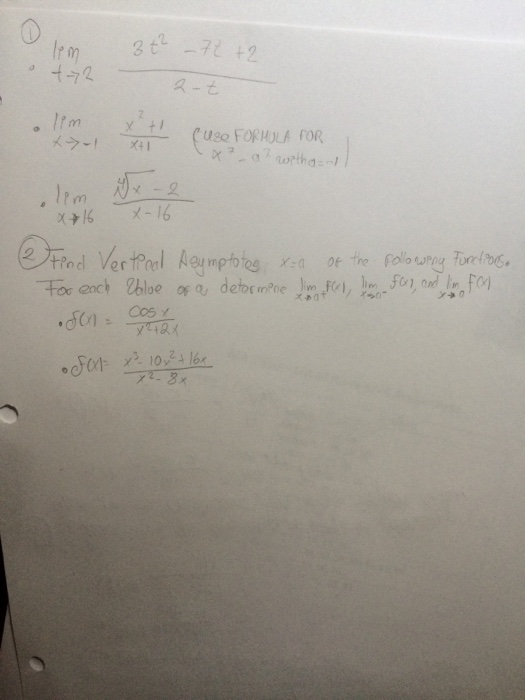 ①
• lim t→2 (3t² - 7t + 2)/(2 - t)
• lim x→-1 (x² + 1)/(x + 1) (use FORMULA FOR
x² - a² with a = -1)
• lim x→16 (∜x - 2)/(x - 16)
② Find Vertical Asymptotes x=a of the following Functions.
For each Value of a, determine lim x→a⁺ f(x), lim x→a⁻ f(x), and lim x→a f(x)
• f(x) = cos x/(x²+2x)
• f(x) = (x³ - 10x² + 16x)/(x² - 8x)